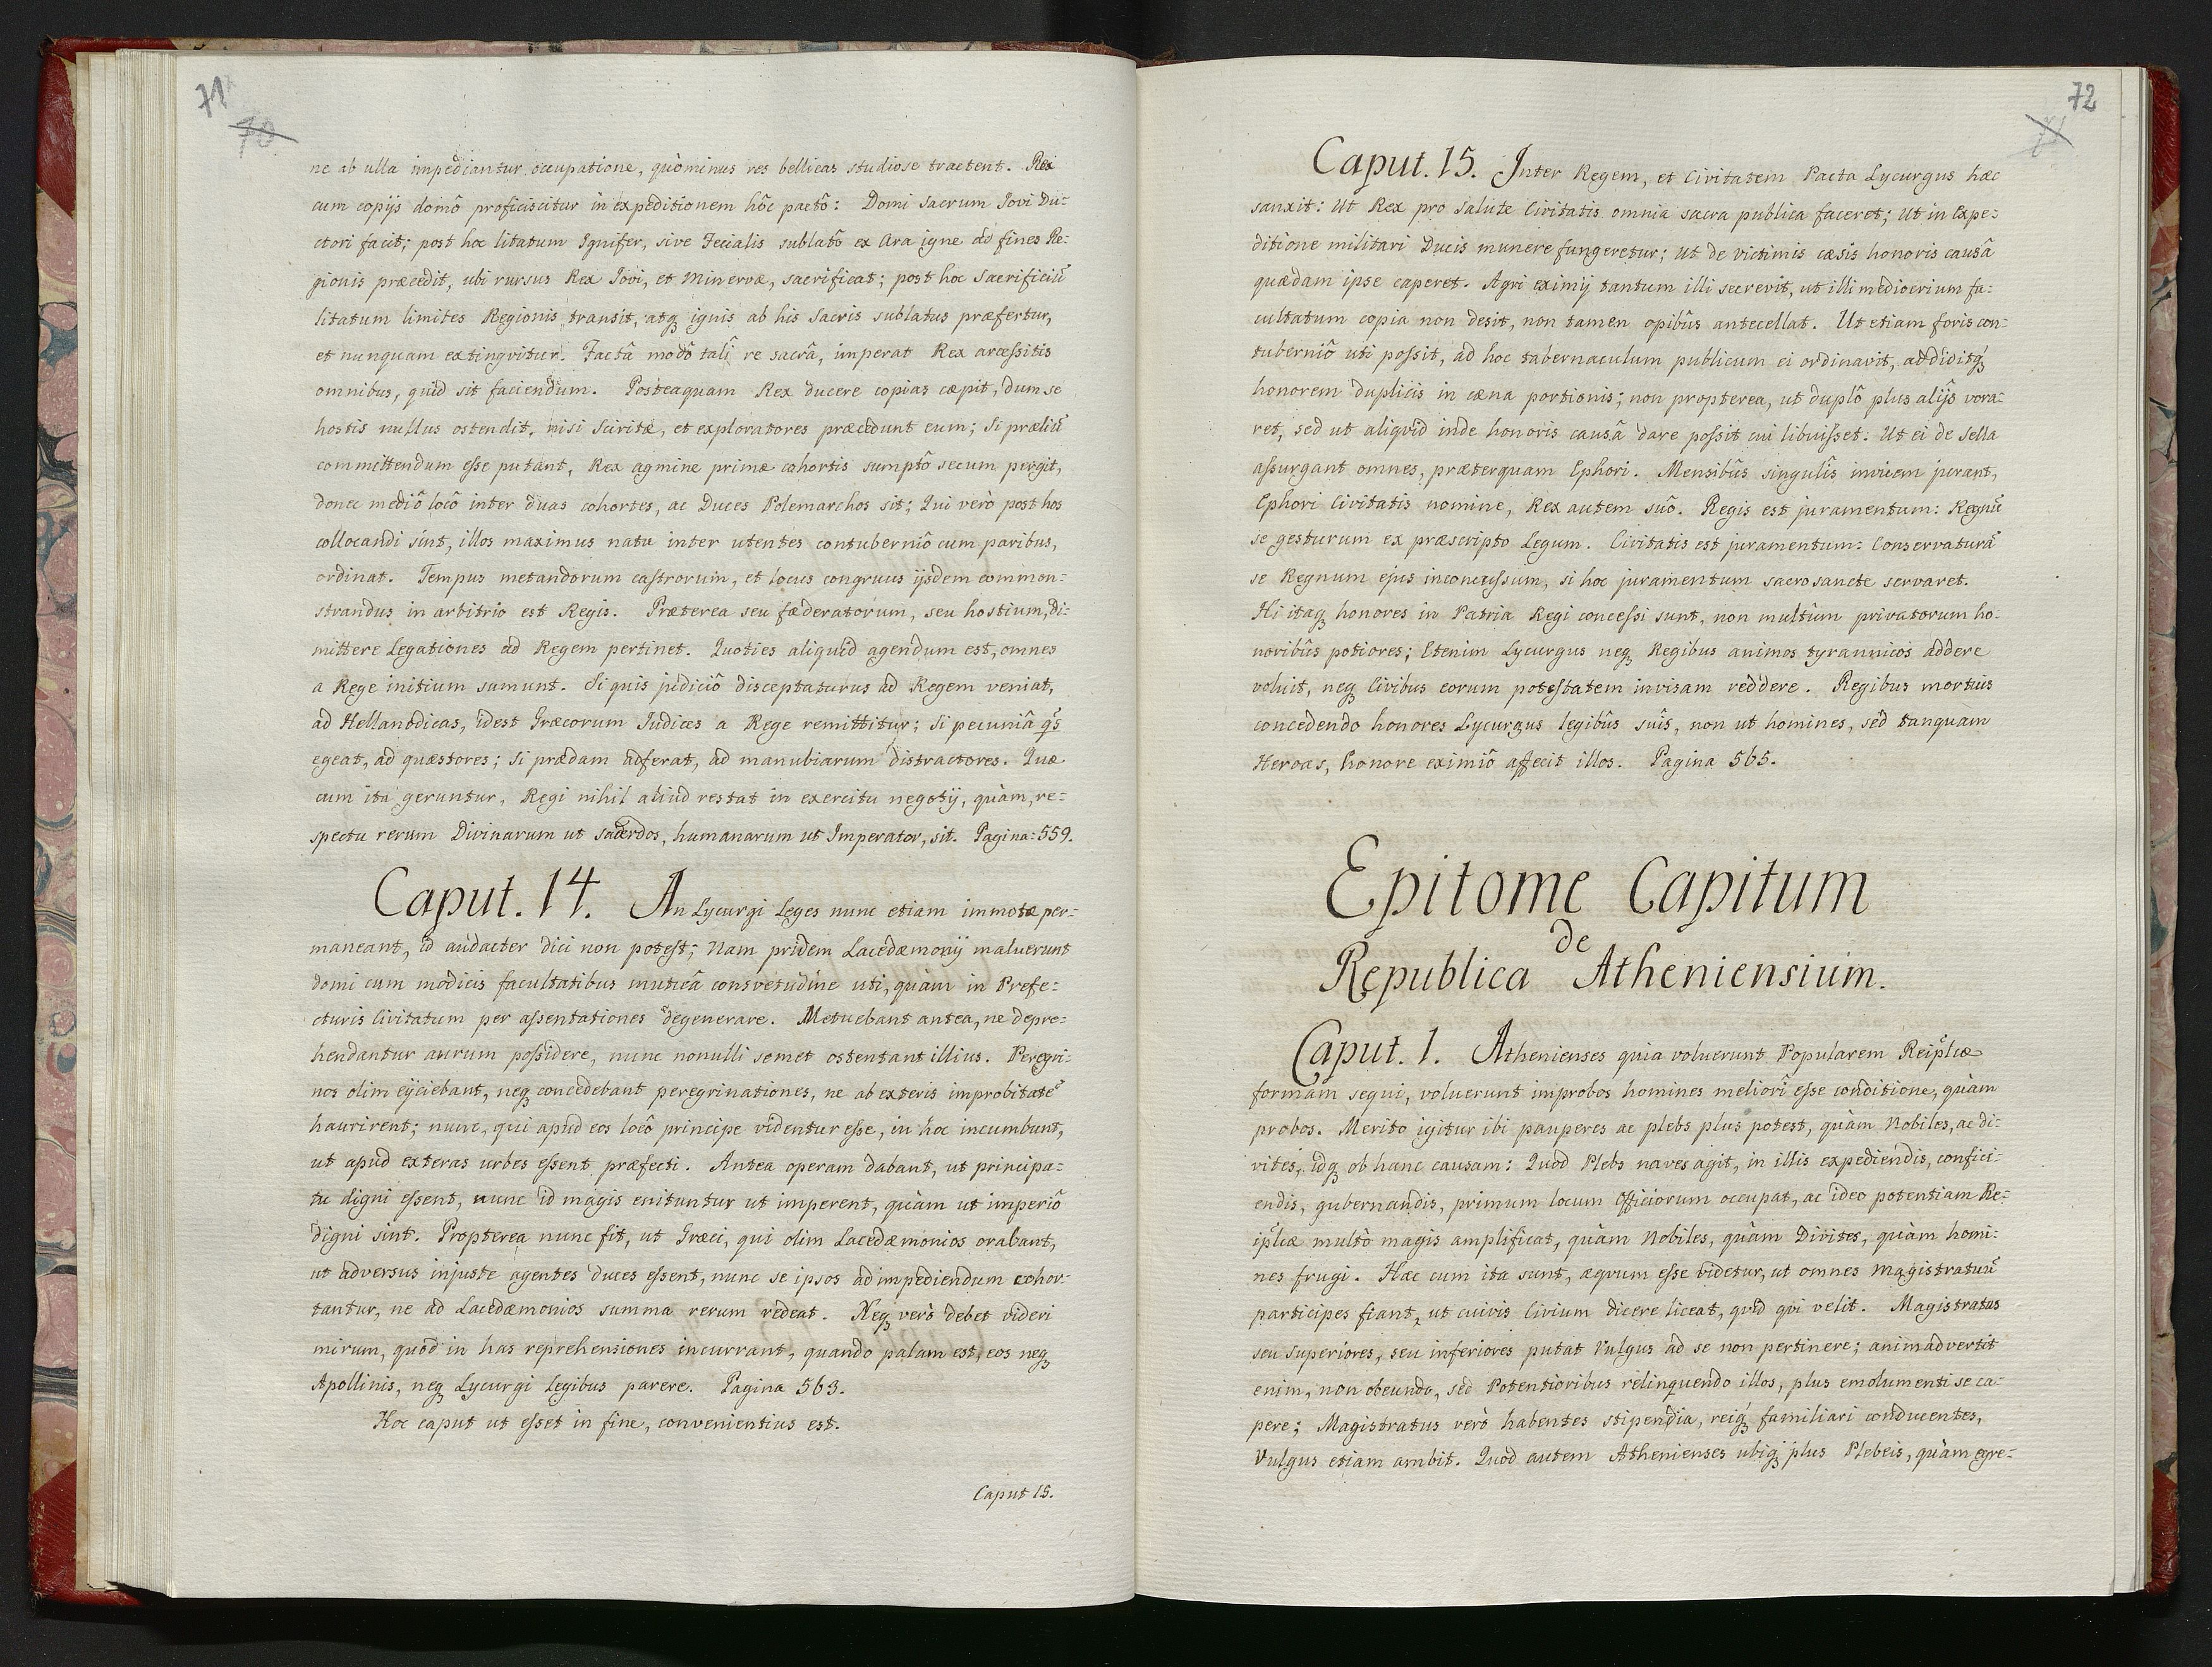 71
70
ne ab ulla impediantur occupatione, quòminus res bellicas studiose tractent. Rex
cum copijs domô proficiscitur in expeditionem hôc pactô: Domi sacrum Jovi Du-
ctori facit; post hoc litatum Ignifer, sive Fecialis sublatô ex Ara igne ad fines Re-
gionis præcedit, ubi rursus Rex Jovi, et Minervæ, sacrificat; post hoc Sacrificiũ
litatum limites Regionis transit, atq₃ ignis ab his Sacris sublatus præfertur,
et nunquam extingvitur. Factâ modô tali re sacrâ, imperat Rex arcessitis
omnibus, quid sit faciendum. Posteaquam Rex ducere copias cæpit, dum se
hostis nullus ostendit, nisi Sciritæ, et exploratores præcedunt eum; Si præliũ
committendum esse putant, Rex agmine primæ cohortis sumptô secum pergit,
donec mediô locô inter duas cohortes, ac Duces Polemarchos sit; Qui verò post hos
collocandi sint, illos maximus natu inter utentes contuberniô cum paribus,
ordinat. Tempus metandorum castrorum, et locus congruus ijsdem common-
strandus in arbitrio est Regis. Præterea seu fæderatorum, seu hostium, di-
mittere Legationes ad Regem pertinet. Quoties aliquid agendum est, omnes
a Rege initium sumunt. Si quis judiciô disceptaturus ad Regem veniat,
ad Hellanodicas, idest Græcorum Judices a Rege remittitur; Si pecuniâ q̃s
egeat, ad quæstores; Si prædam adferat, ad manubiarum distractores. Quæ
cum ita geruntur, Regi nihil aliud restat in exercitu negotij, quàm, re-
spectu rerum Divinarum ut sacerdos, humanarum ut Imperator, sit. Pagina: 559.
Caput. 14. An Lycurgi Leges nunc etiam immotæ per-
maneant, id audacter dici non potest; Nam pridem Lacedæmonij maluerunt
domi cum modicis facultatibus mutuâ consvetudine uti, quàm in Prefe-
cturis Civitatum per assentationes degenerare. Metuebant antea, ne depre-
hendantur aurum possidere, nunc nonulli semet ostentant illius. Peregri-
nos olim eijciebant, neq₃ concedebant peregrinationes, ne ab exteris improbitatẽ
haurirent; nunc, qui apud eos locô principe videntur esse, in hoc incumbunt,
ut apud exteras urbes essent præfecti. Antea operam dabant, ut principa-
tu digni essent, nunc id magis enituntur ut imperent, quàm ut imperiô
digni sint. Propterea nunc fit, ut Græci, qui olim Lacedæmonios orabant,
ut adversus injuste agentes duces essent, nunc se ipsos ad impediendum cohor-
tantur, ne ad Lacedæmonios summa rerum redeat. Neq₃ verò debet videri
mirum, quòd in has reprehensiones incurrant, quando palam est, eos neq₃
Apollinis, neq₃ Lycurgi Legibus parere. Pagina 563.
Hoc caput ut esset in fine, convenientius est.
Caput 15.
72
71
Caput. 15. Inter Regem, et Civitatem Pacta Lycurgus hæc
sanxit: Ut Rex pro Salute Civitatis omnia sacra publica faceret; Ut in Expe-
ditione militari Ducis munere fungeretur; ut de victimis cæsis honoris causâ
quædam ipse caperet. Agri eximij tantum illi secrevit, ut illi mediocrium fa-
cultatum copia non desit, non tamen opibûs antecellat. Ut etiam foris con-
tuberniô uti possit, ad hoc tabernaculum publicum ei ordinavit, addiditq₃
honorem duplicis in cæna portionis; non propterea, ut duplô plus alijs vora-
ret, sed ut aliqvid inde honoris causâ dare possit cui libuisset. Ut ei de Sella
assurgant omnes, præterquam Ephori. Mensibûs singulîs invicem jurant,
Ephori Civitatis nomine, Rex autem suô. Regis est juramentum: Regnũ
se gesturum ex præscripto Legum. Civitatis est juramentum: Conservaturã
se Regnum ejus inconcussum, si hoc juramentum sacrosancte servaret.
Hi itaq₃ honores in Patria Regi concessi sunt, non multùm privatorum ho-
noribûs potiores; Etenim Lycurgus neq₃ Regibus animos tyrannicos addere
voluit, neq₃ Civibus eorum potestatem invisam reddere. Regibus mortuis
concedendo honores Lycurgus legibûs suîs, non ut homines, sed tanquam
Heroas, honore eximiô affecit illos. Pagina 565.
Epitome Capitum
de
Republica Atheniensium.
Caput. 1. Athenienses quia voluerunt Popularem Reiplcæ
formam sequi, voluerunt improbos homines meliorî esse conditione, quàm
probos. Merito igitur ibi pauperes ac plebs plus potest, quàm Nobiles, ac di-
vites, idq₃ ob hanc causam: Quòd Plebs naves agit, in illis expediendis, confici-
endis, gubernandis, primum locum Officiorum occupat, ac ideo potentiam Re-
iplcæ multò magis amplificat, quàm Nobiles, quàm Divites, quàm homi-
nes frugi. Hæc cum ita sunt, æqvum esse videtur, ut omnes Magistratuũ
participes fiant, ut cuivis Civium dicere liceat, qvid qvi velit. Magistratus
seu superiores, seu inferiores putat Vulgus ad se non pertinere; animadvertit
enim, non obeundo, sed Potentioribus relinquendo illos, plus emolumenti se ca-
pere; Magistratus verò habentes stipendia, reiq₃ familiari conducentes,
Vulgus etiam ambit. Quòd autem Athenienses ubiq₃ plus Plebeis, quàm egre-